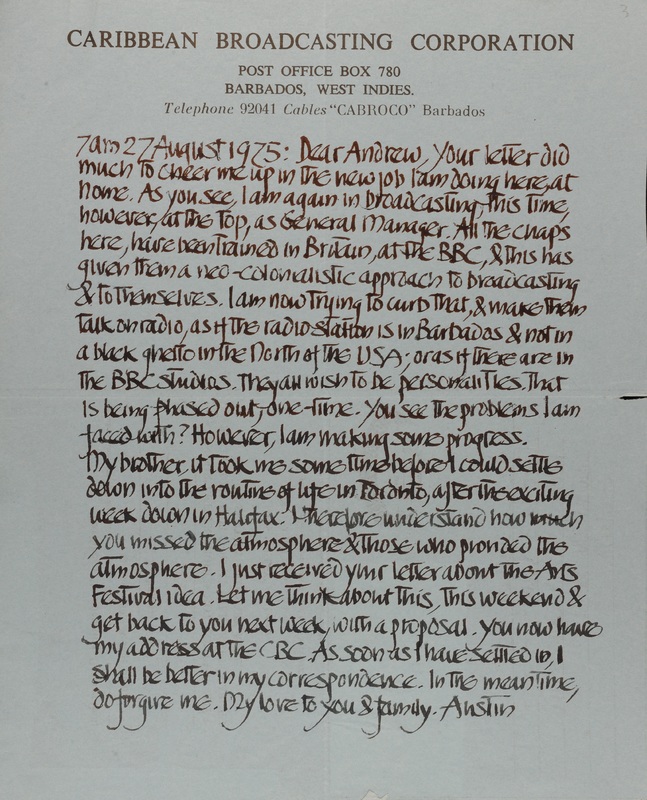 3
CARIBBEAN BROADCASTING CORPORATION
POST OFFICE BOX 780
BARBADOS, WEST INDIES.
Telephone 92041 Cables "CABROCO" Barbados
7am 27 August 1975: Dear Andrew, Your letter did
much to cheer me up in the new job I am doing here, at
home. As you see, I am again in broadcasting, this time,
however, at the top, as General Manager. All the chaps
here, have been trained in Britain, at the BBC, & this has
given them a neo-colonialistic approach to broadcasting
& to themselves. I am now trying to curb that, & make them
talk on radio, as if the radio station is in Barbados & not in
a black ghetto in the North of the USA; or as if there are in
the BBC studios. They all wish to be personalities. That
is being phased out, one-time. You see the problems I am
faced with? However, I am making some progress.
My brother, it took me some time before I could settle
down into the routine of life in Toronto, after the exciting
week down in Halifax. I therefore understand how much
you missed the atmosphere & those who provided the
atmosphere. I just received your letter about the Arts
Festival idea. Let me think about this, this weekend &
get back to you next week, with a proposal. You now have
my address at the CBC. As soon as I have settled in, I
shall be better in my correspondence. In the meantime,
do forgive me. My love to you & family. Austin